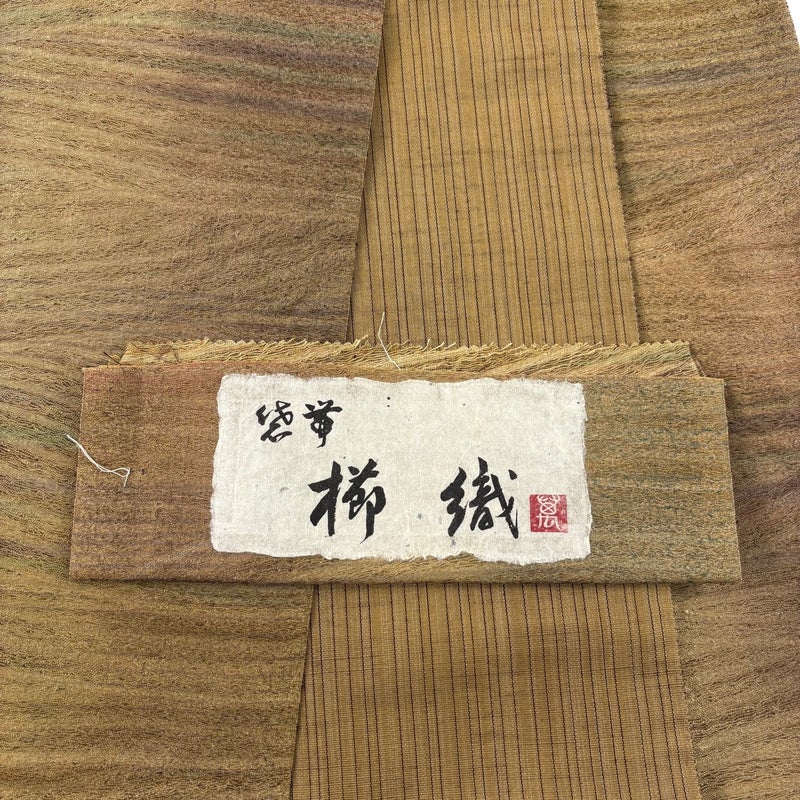 袋帯
櫛織
萬